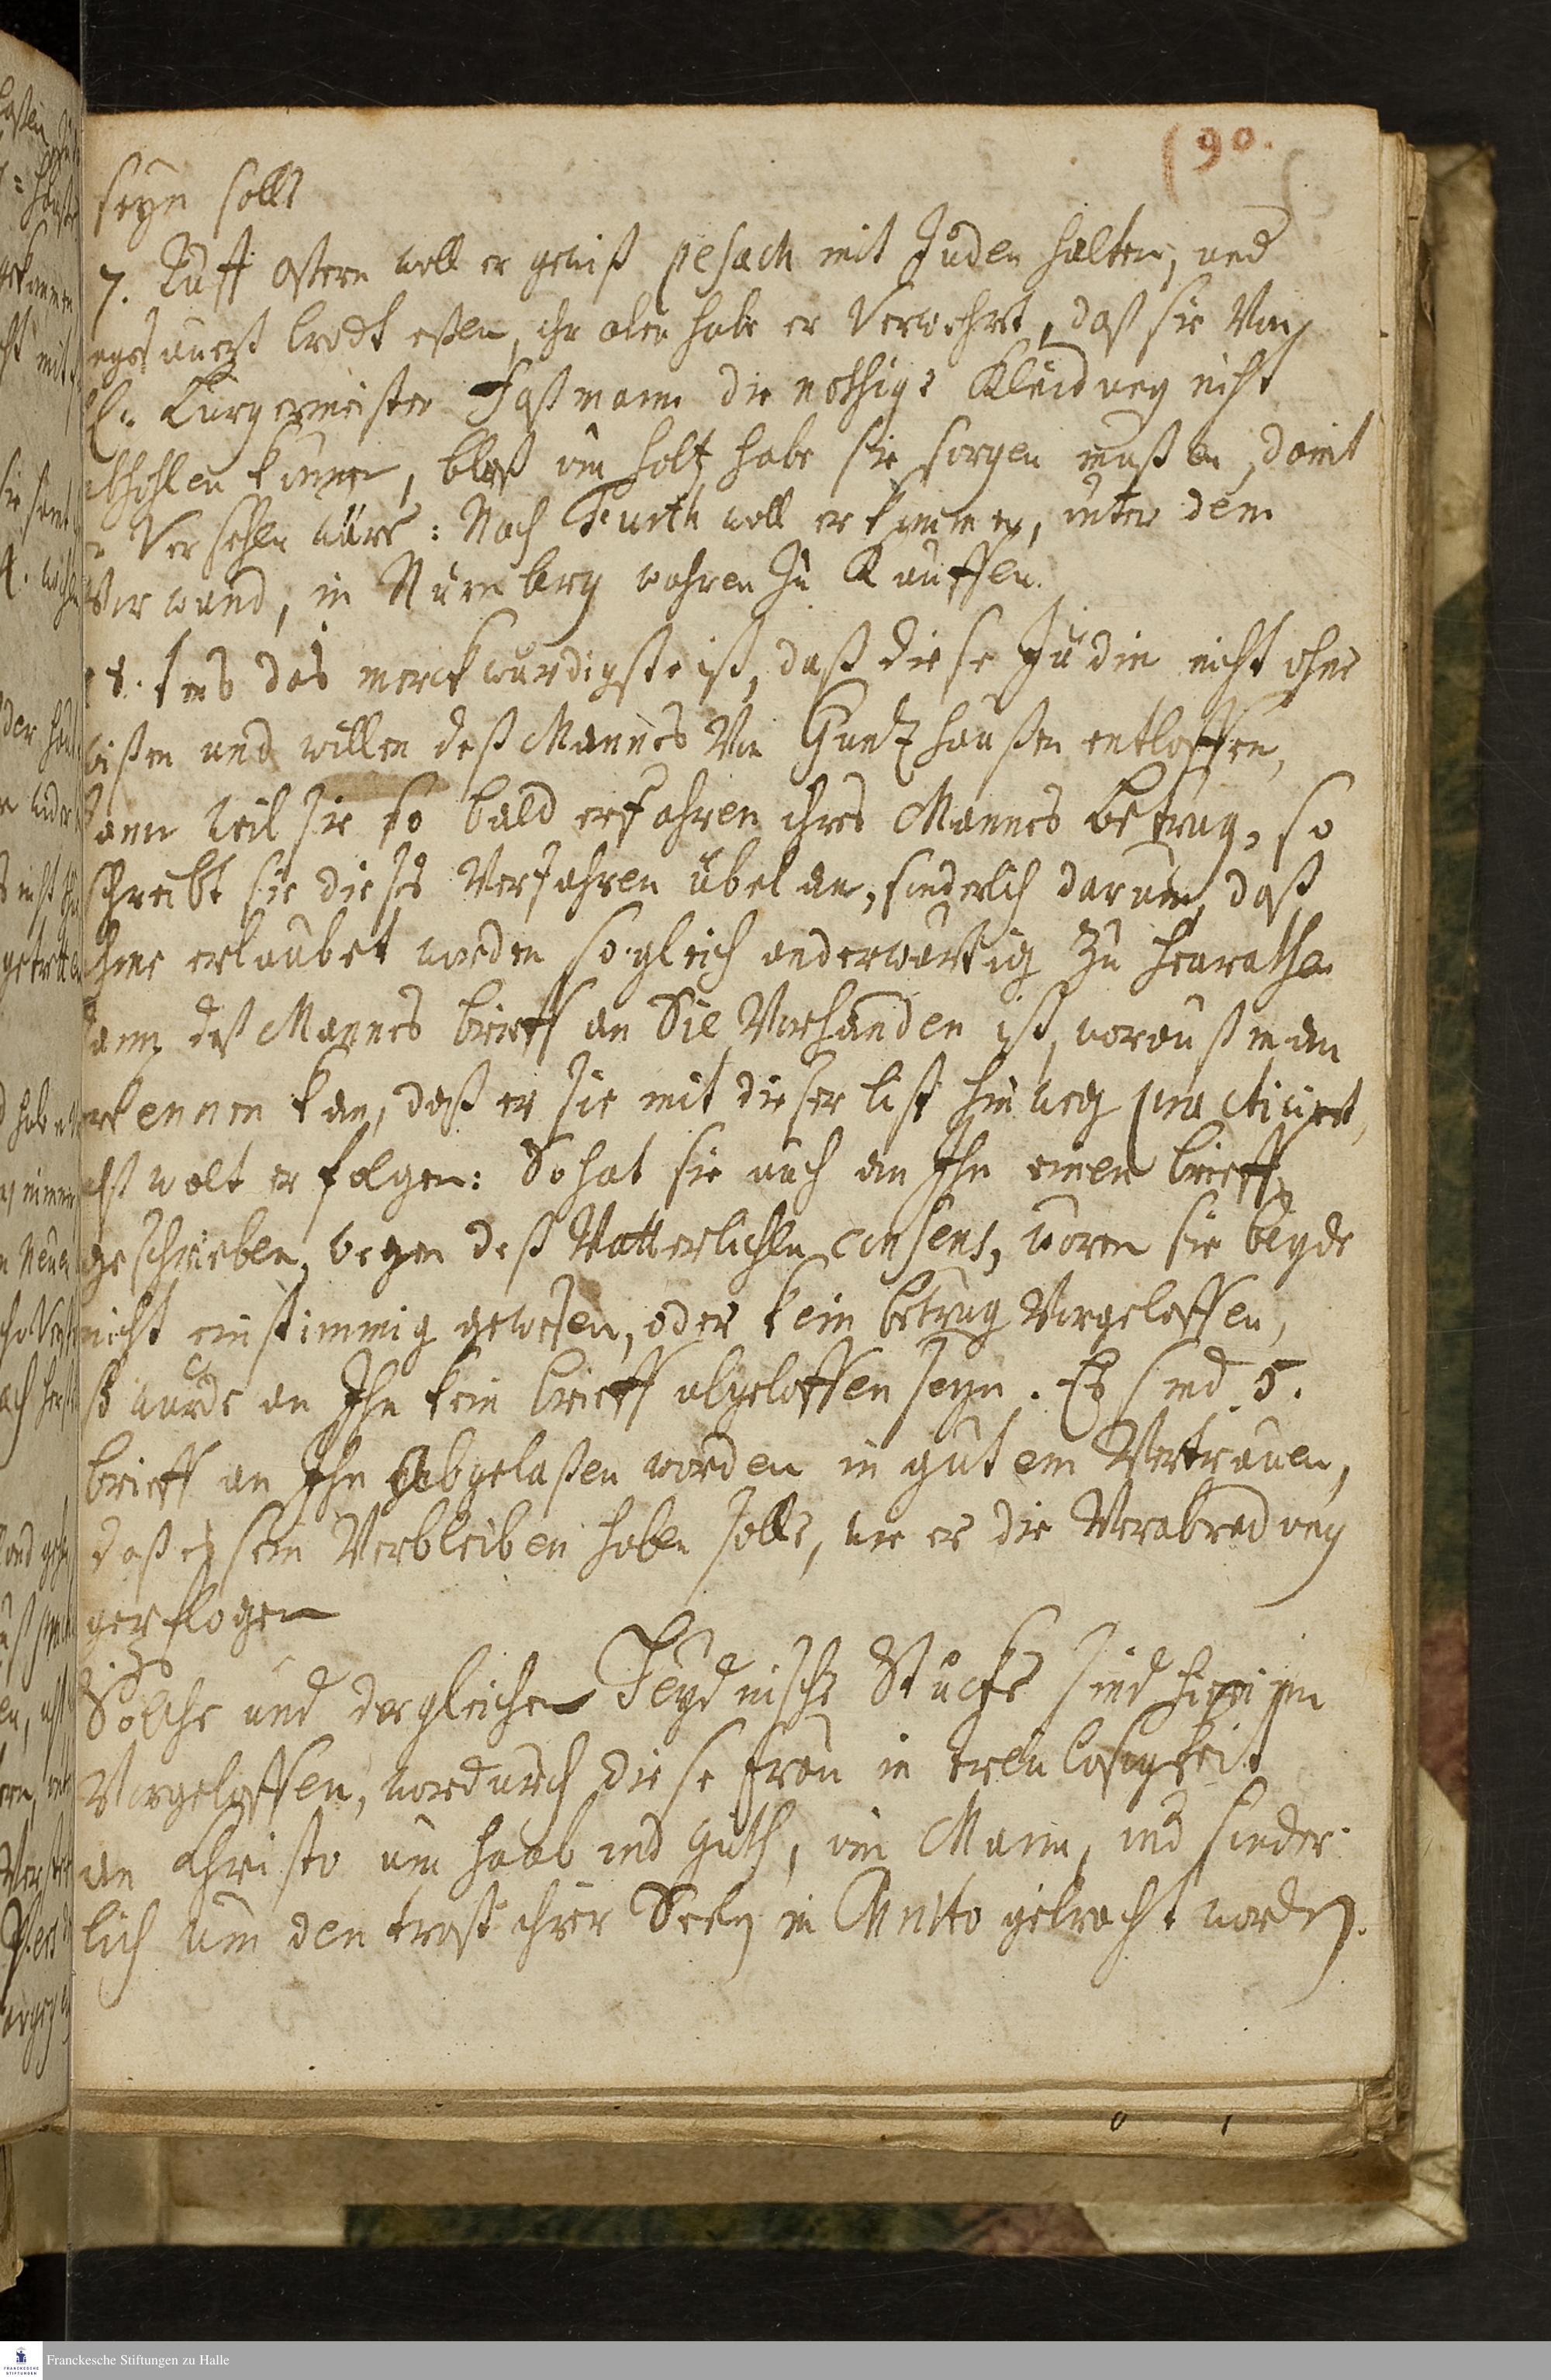 190.
seyn sollt
7. Auff ostern woll er gewiß pesach mit Juden halten, und
ungesauert brodt eßen, ihr aber habe er verwehrt, daß sie von
H. burgermeister Faßmann die nöthige Kleidung nicht
abhohlen können, bloß um holtz habe sie sorgen mußen, damit
versehen wäre: Nach Furth woll er kommen, unter dem
Vorwand, in Nurnberg wahren zu Kauffen.
8. das merckwürdigste ist, daß diese Jüdin nicht ohne
wißen und willen deß Mannes von Guntzhaußen entloffen,
dann weil sie so bald erfahren ihres Mannes betrug, so
schreibt sie dieses Verfahren übel an, sonderlich darum, daß
ihme erlaubet worden sogleich anderwärtig zu heurathen
dann deß Mannes brieff an Sie vorhanden ist, worauß man
erkennen kan, daß er sie mit dieser list hinweg practicirt,
wolt er folgen: So hat sie auch an Ihn einen brieff
geschrieben, wegen deß Vatterlichen consens, wären sie beyde
nicht einstimmig gewesen, oder kein betrug vorgeloffen,
so würde an Ihn kein brieff abgeloffen seyn. Es sind 5.
brieff an Ihn abgelaßen worden in gutem Vertrauen,
daß es sein Verbleiben haben solle, wie er die Verabredung
gepflogen
Solche und dergleichen Heydnische Stücke sind hierinn
vorgeloffen, wordurch diese frau in treulosigkeit
an Christo um haab und guth, um Mann, und sonder-
lich um den trost ihrer Seelen in Christo gebracht worden.
Franckesche Stiftungen zu Halle